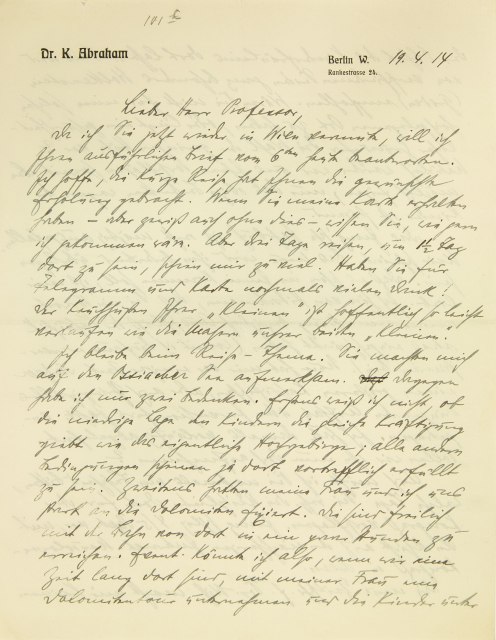 101 c
Dr. K. Abraham
Berlin W. 19.4.14
Rankestrasse 24.
Lieber Herr Professor,
Da ich Sie jetzt wieder in Wien vermute, will ich
Ihren ausführlichen Brief vom 6ten heute beantworten.
Ich hoffe, die kurze Reise hat Ihnen die gewünschte
Erholung gebracht. Wenn Sie meine Karte erhalten
haben – aber gewiß auch ohne dies –, wissen Sie, wie gern
ich gekommen wäre. Aber drei Tage reisen, um 1½ Tag
dort zu sein, schien mir zu viel. Haben Sie für
Telegramm und Karte nochmals vielen Dank!
Der Keuchhusten Ihrer „Kleinen" ist hoffentlich so leicht
verlaufen wie die Masern unsrer beiden „Kleinen".
Ich bleibe beim Reise-Thema. Sie machten mich
auf den Ossiacher See aufmerksam. Dagegen
habe ich nur zwei Bedenken. Erstens weiß ich nicht, ob
die niedrige Lage den Kindern die gleiche Kräftigung
giebt wie das eigentliche Hochgebirge; alle andern
Bedingungen scheinen ja dort vortrefflich erfüllt
zu sein. Zweitens hatten meine Frau und ich uns
stark an die Dolomiten fixiert. Die sind freilich
mit der Bahn von dort in ein paar Stunden zu
erreichen. Event. könnte ich also, wenn wir eine
Zeit lang dort sind, mit meiner Frau eine
Dolomitentour unternehmen und die Kinder unter